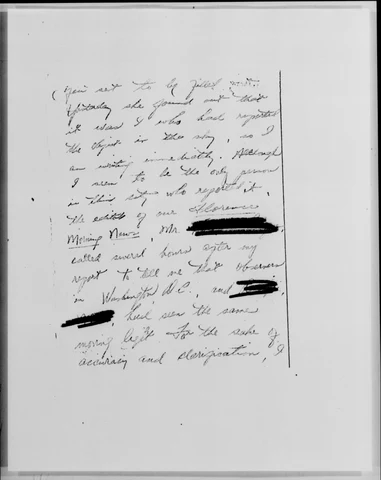 ( you set to be filled out.
Yesterday she found out that
it was I who had reported
the object in the sky, so I
am writing immediately. Although
I seem to be the only person
in this city who reported it,
the editor of our Florence
Morning News, Mr.
called several hours after my
report to tell me that observers
in Washington, D.C., and
, had seen the same
moving light. For the sake of
accuracy and clarification, I